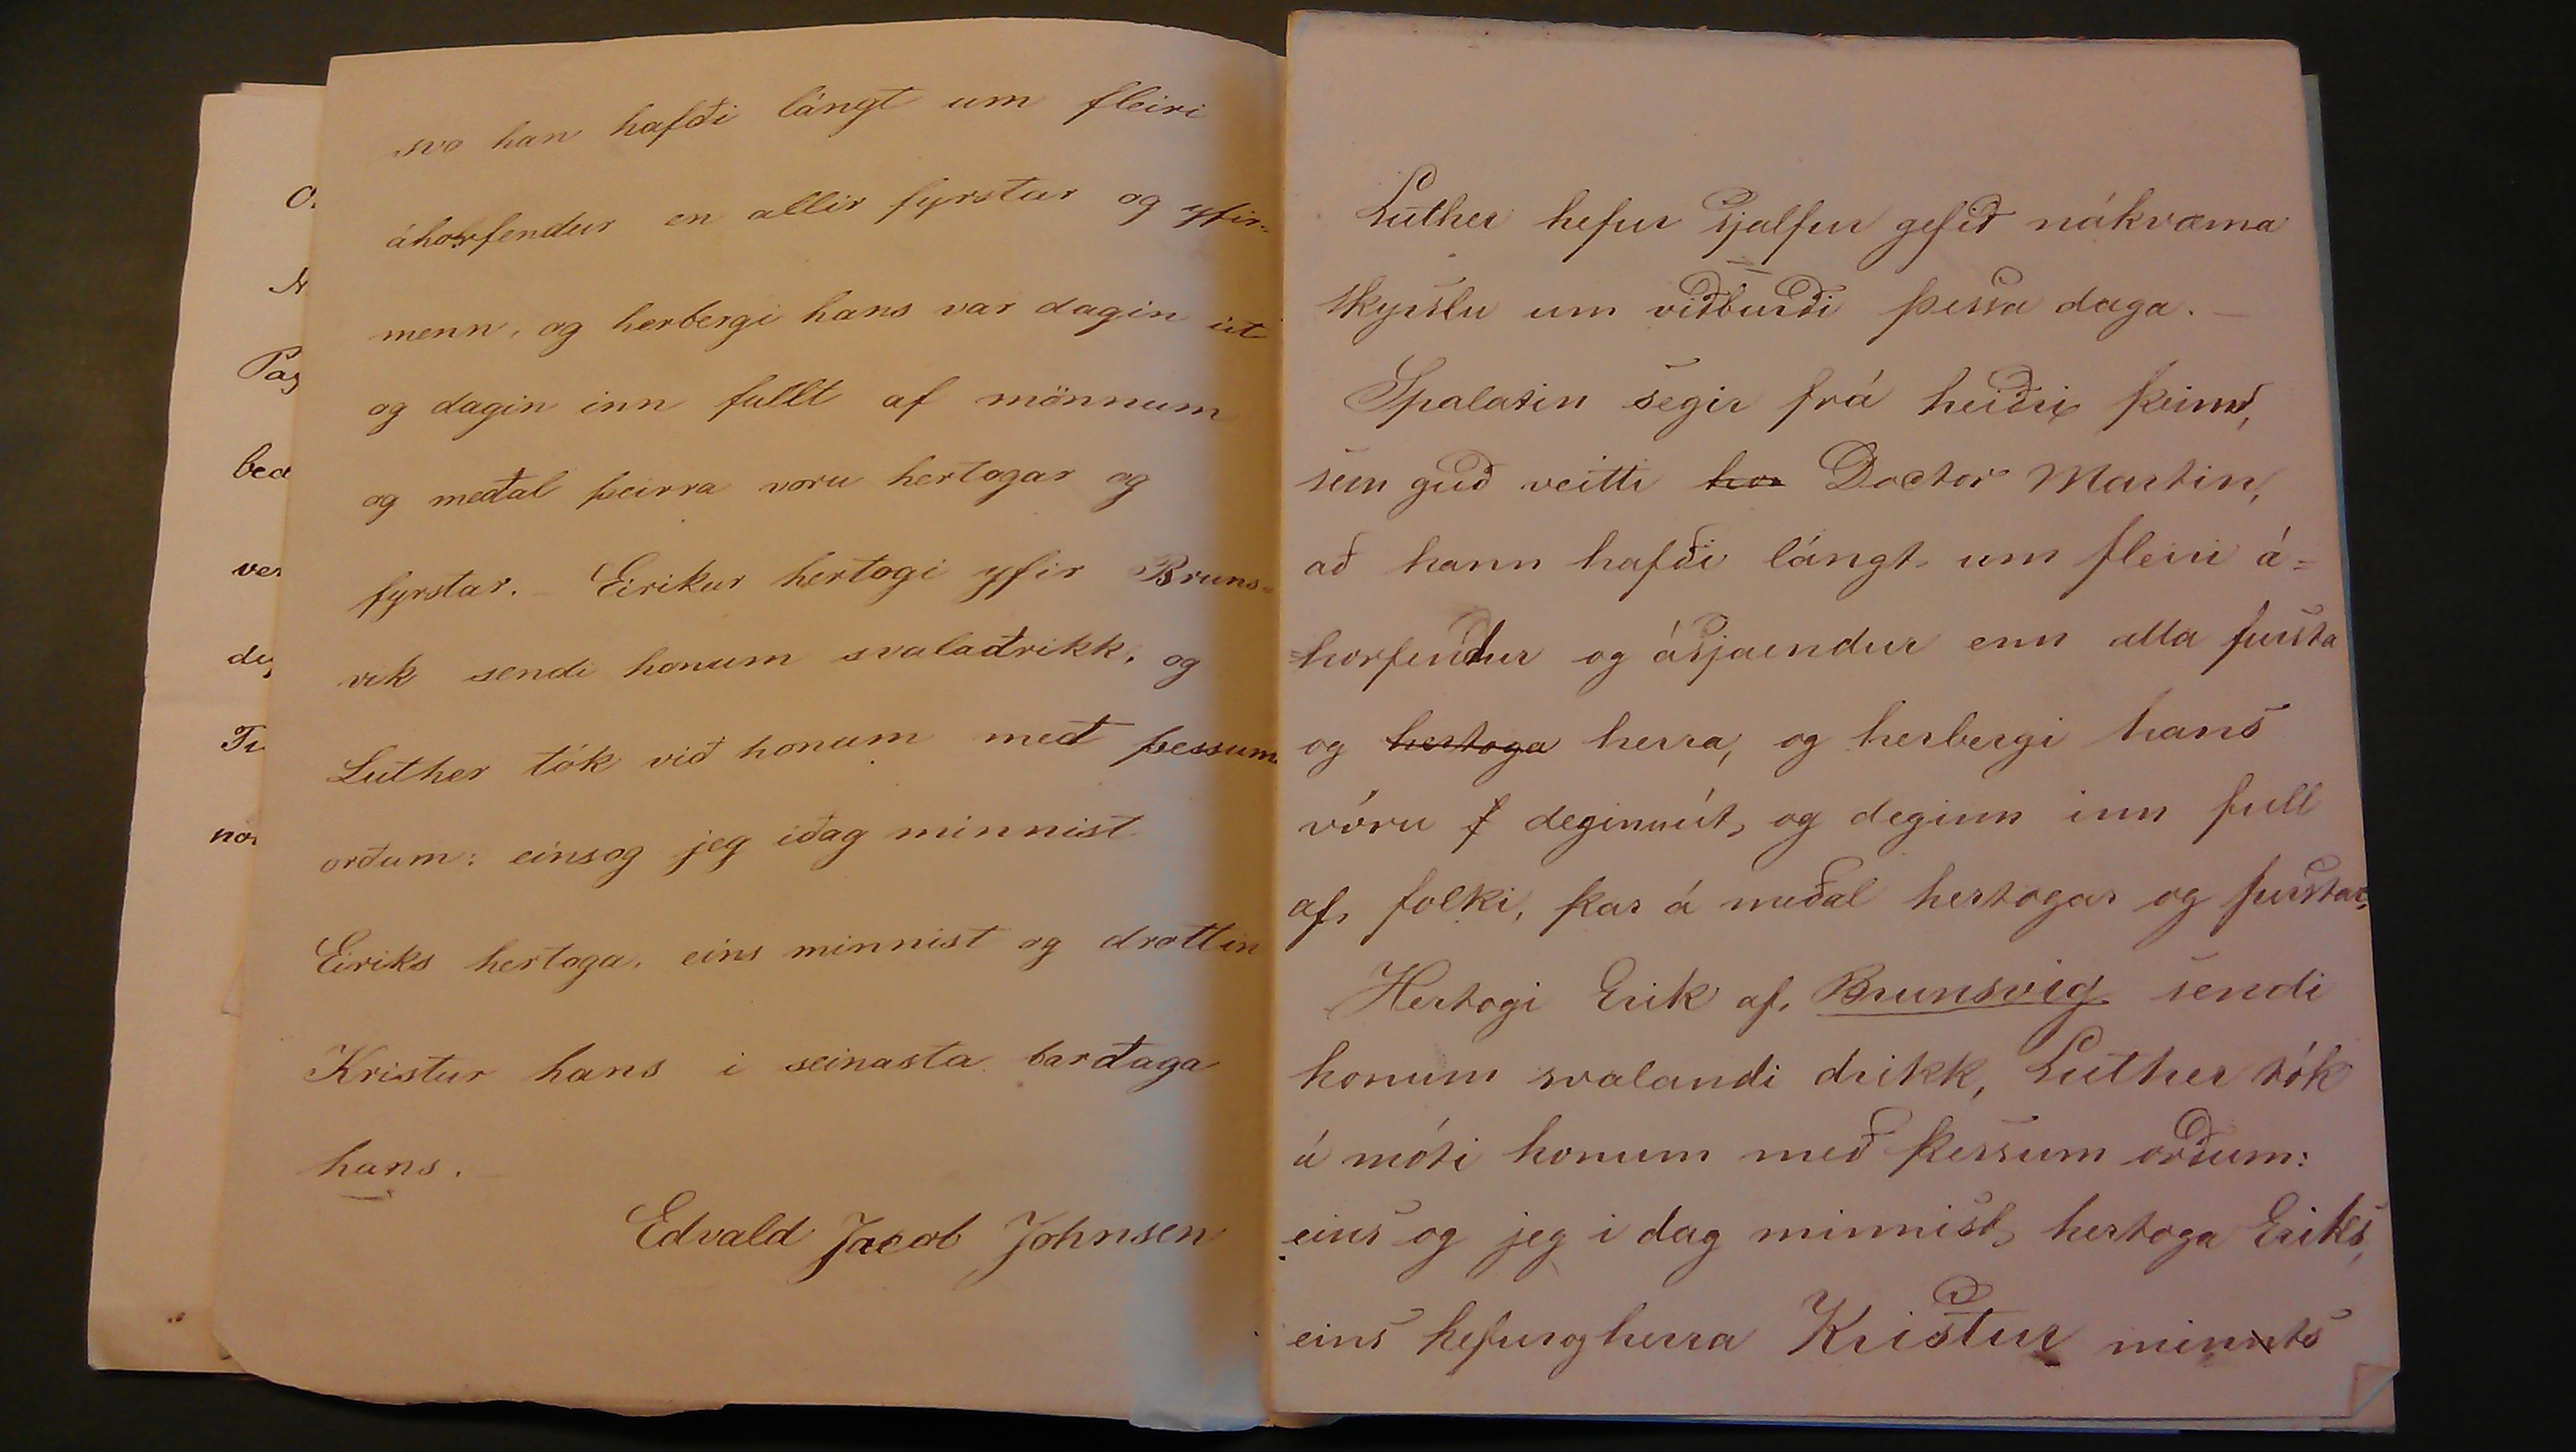 svo han hafði lángt um fleiri
áhorfendur en allir fyrstar og yfir-
menn, og herbergi hans var dagin út
og dagin inn fullt af mönnum
og meðal þeirra voru hertogar og
fyrstar. - Eirikur hertogi yfir Bruns-
vik sendi honum svalaðrikk, og
Luther tók við honum með þessum
orðum: einsog jeg iðag minnist
Eiriks hertoga, eins minnist og drottin
Kristur hans i seinasta barðaga
hans.
Edvald Jacob Johnsen
O
N
Pas
bea
ver
dy
Tu
nor
Luther hefur sjalfur gefið nákvæma
skyrslu um viðburði þessa daga. -
Spalatin segir frá heiðri þeim,
sem guð veitti hon Doctor Martin,
að hann hafði lángt um fleiri á=
=horfendur og ásjaendur enn alla fursta
og hertoga herra, og herbergi hans
vóru f deginnút, og deginn inn full
af folki, þar á meðal hertogar og furstar,
Hertogi Erik af Brunsvig sendi
honum svalandi drikk, Luther tók
á móti honum með þessum orðum:
eins og jeg i dag minnist hertoga Eriks,
eins hefur og herra Kristur minnts